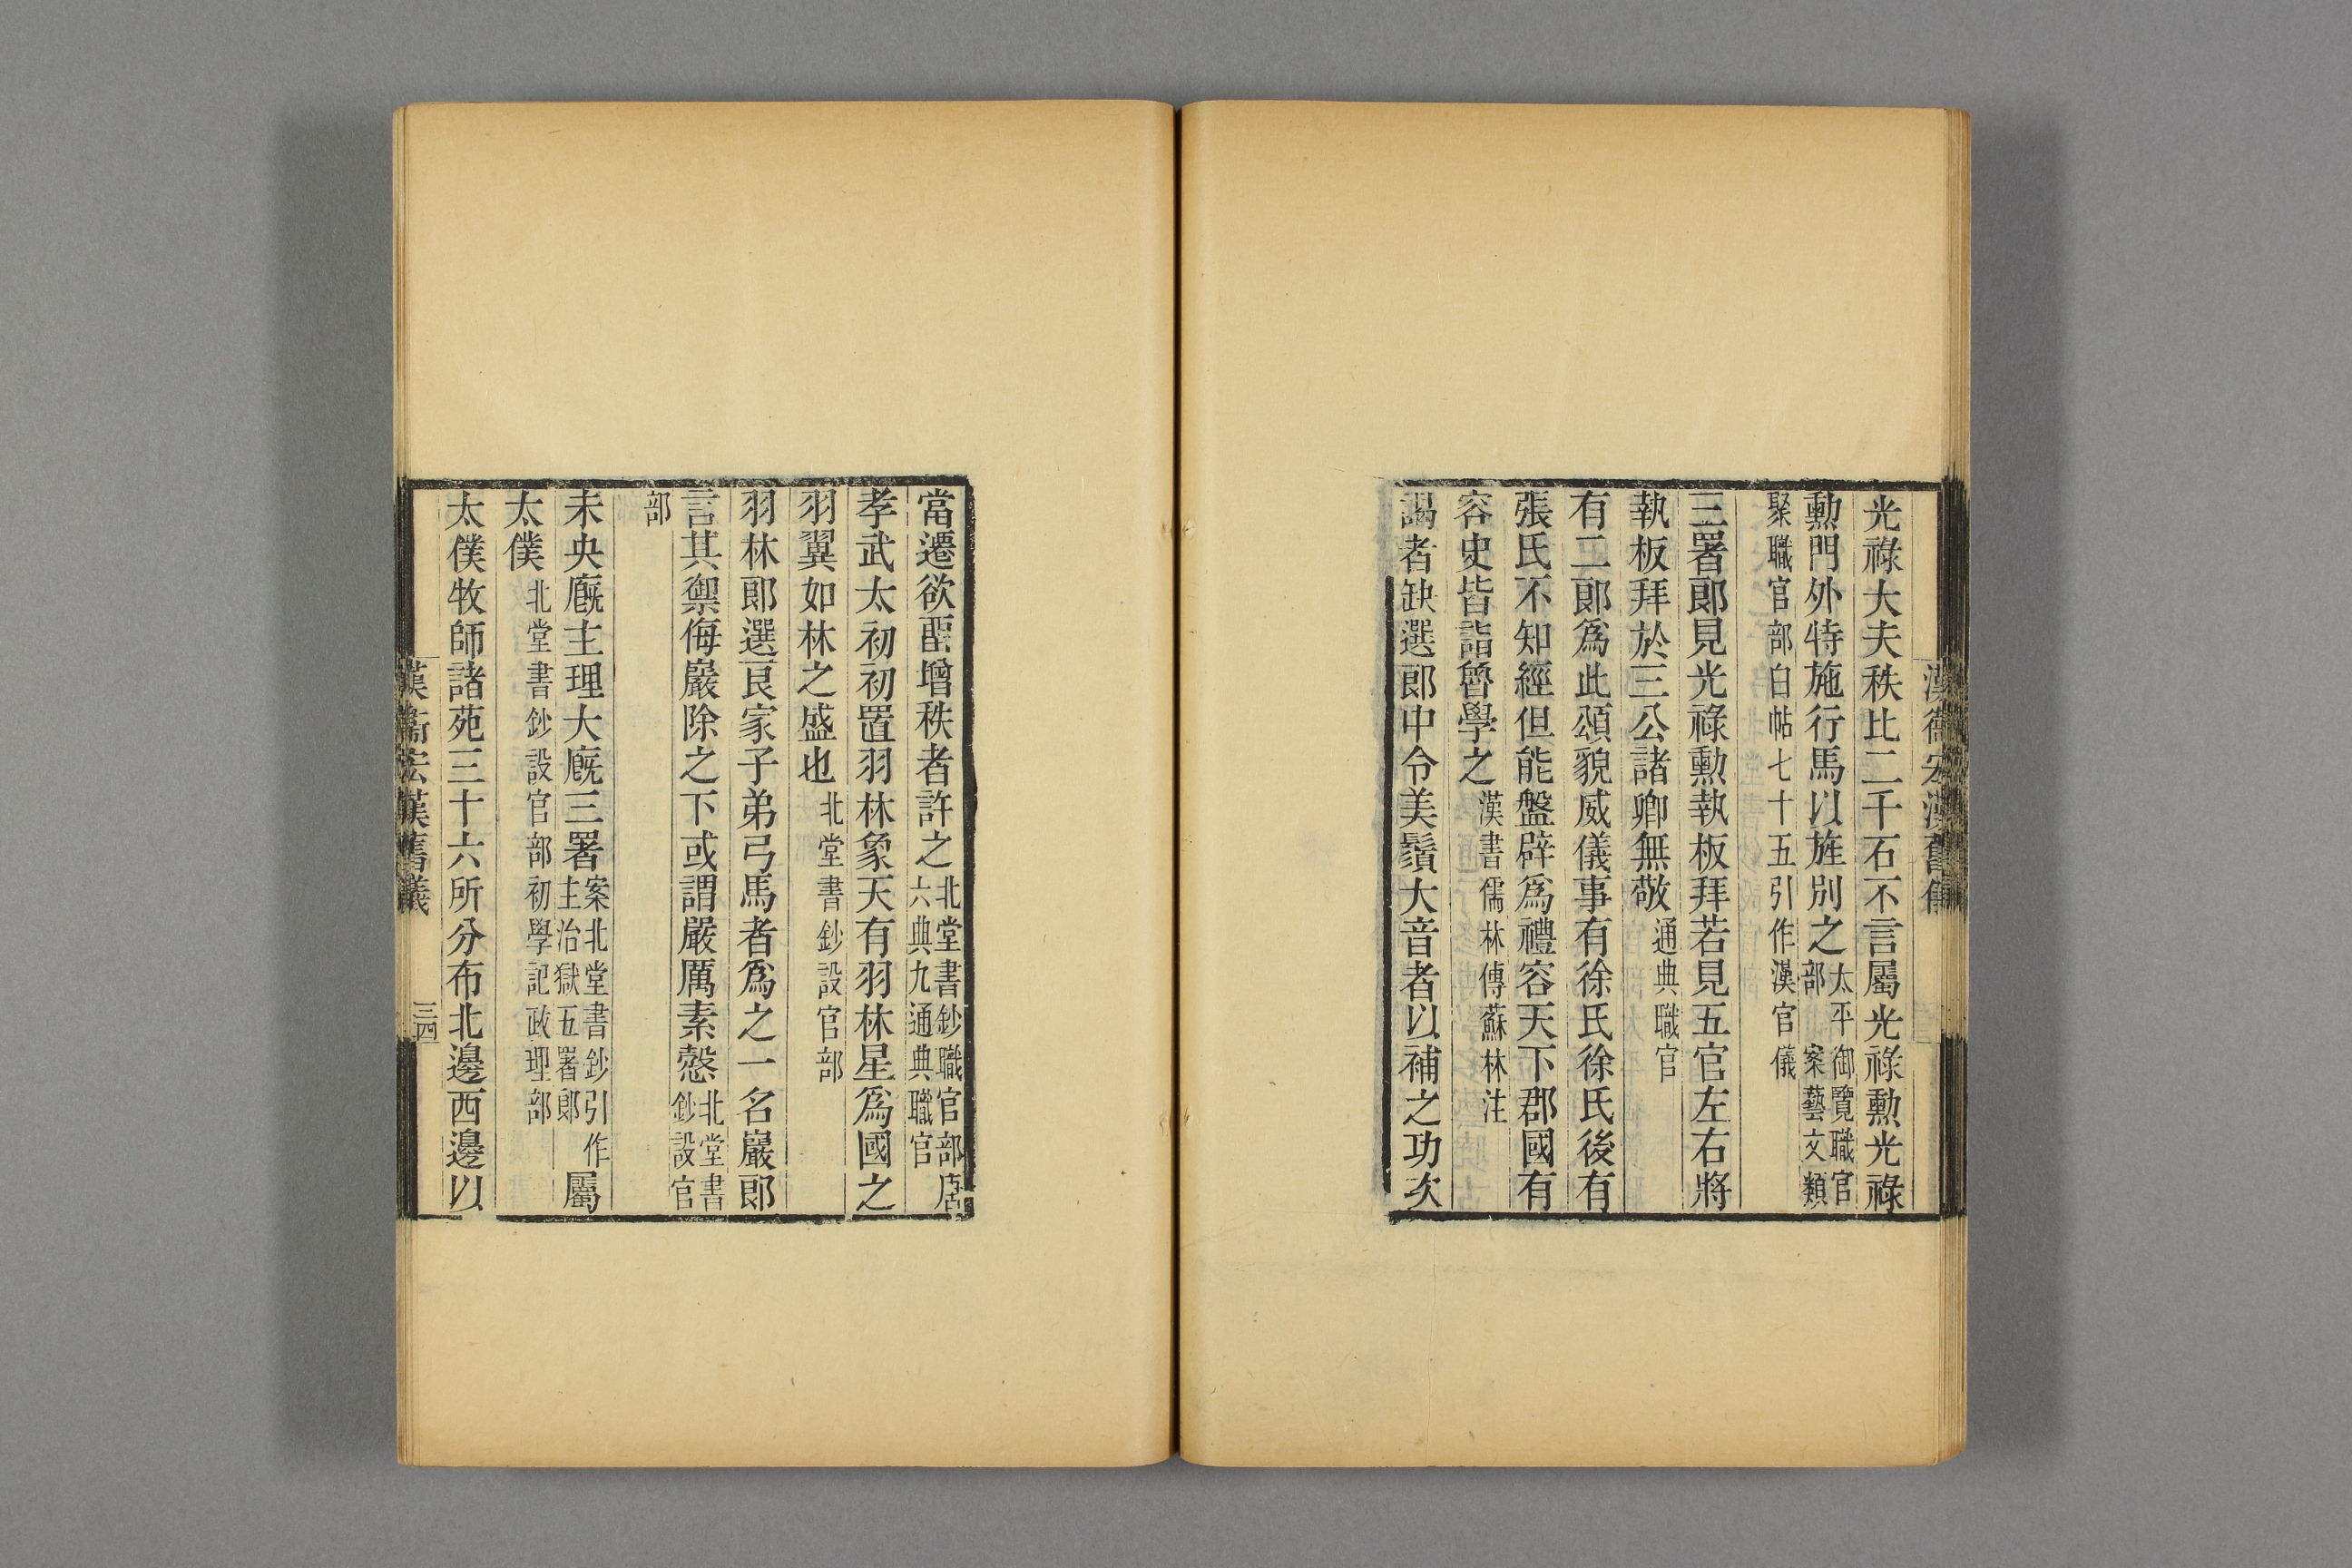 漢衛宏漢舊儀
光祿大夫秩比二千石不言屬光祿勳光祿
勳門外特施行馬以旌別之太平御覽職官部 案藝文類
聚職官部白帖七十五引作漢官儀
三署郎見光祿勳執板拜若見五官左右將
執板拜於三公諸卿無敬通典職官
有二郎爲此頌貌威儀事有徐氏徐氏後有
張氏不知經但能盤辟爲禮容天下郡國有
容史皆詣魯學之漢書儒林傳蘇林注
謁者缺選郎中令美鬚大音者以補之功次
當遷欲畱增秩者許之北堂書鈔職官部唐六典九通典職官
孝武太初初置羽林象天有羽林星爲國之
羽翼如林之盛也北堂書鈔設官部
羽林郎選良家子弟弓馬者爲之一名巖郎
言其禦侮巖除之下或謂嚴厲素慤北堂書鈔設官
部
未央廐主理大廐三署案北堂書鈔引作主治獄五署郎屬
太僕北堂書鈔設官部初學記政理部
太僕牧師諸苑三十六所分布北邊西邊以
漢衛宏漢舊儀
三四